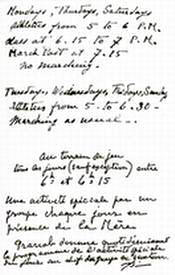 Mondays, Thursdays, Saturdays
Athletics from 5 - to 6 P.M.
class at 6.15 to 7 P.M.
March Past at 7.15
no marching.
Tuesdays, Wednesdays, Fridays, Sunday
Athletics from 5 - to 6.30 -
Marching as usual -
Au terrain de jeu
tous les jours (sauf exception) entre
6h et 6h15
Une activité spéciale par un
groupe chaque jour en
présence de la Mère.
Pranab donnera
le programme de l'activité spéciale